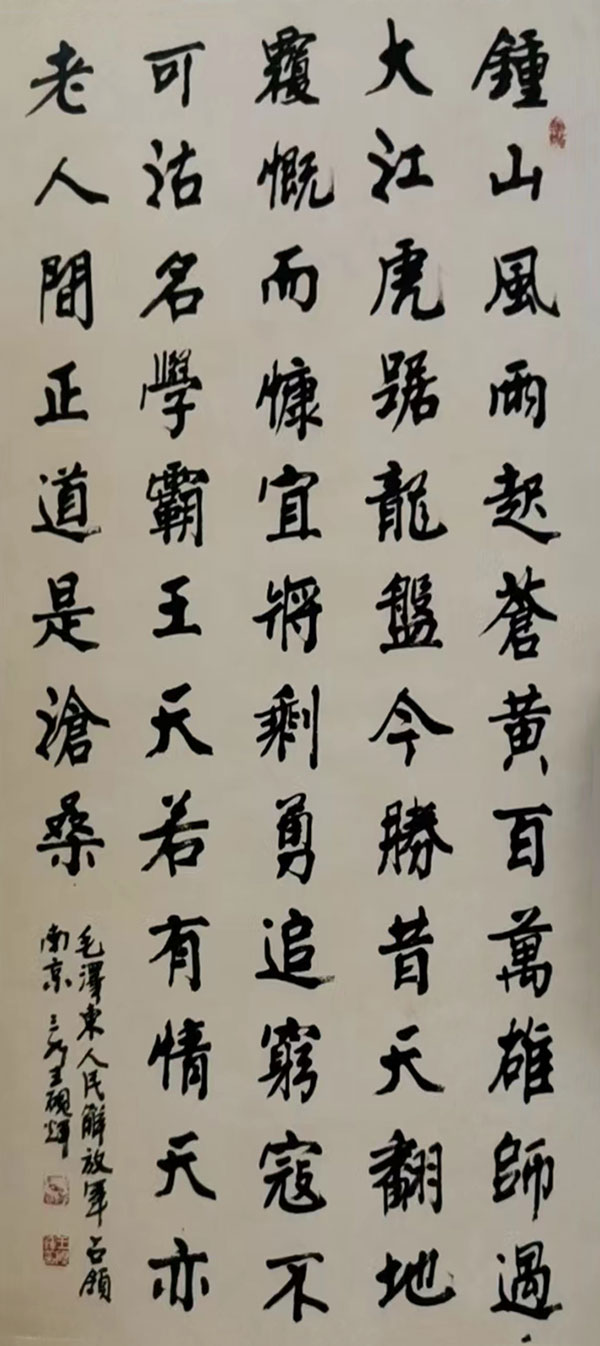 鍾山風雨起蒼黄百萬雄師過
大江虎踞龍盤今勝昔天翻地
覆慨而慷宜將剩勇追窮寇不
可沽名學霸王天若有情天亦
老人間正道是滄桑
毛澤東人民解放軍占領
南京 王硯輝